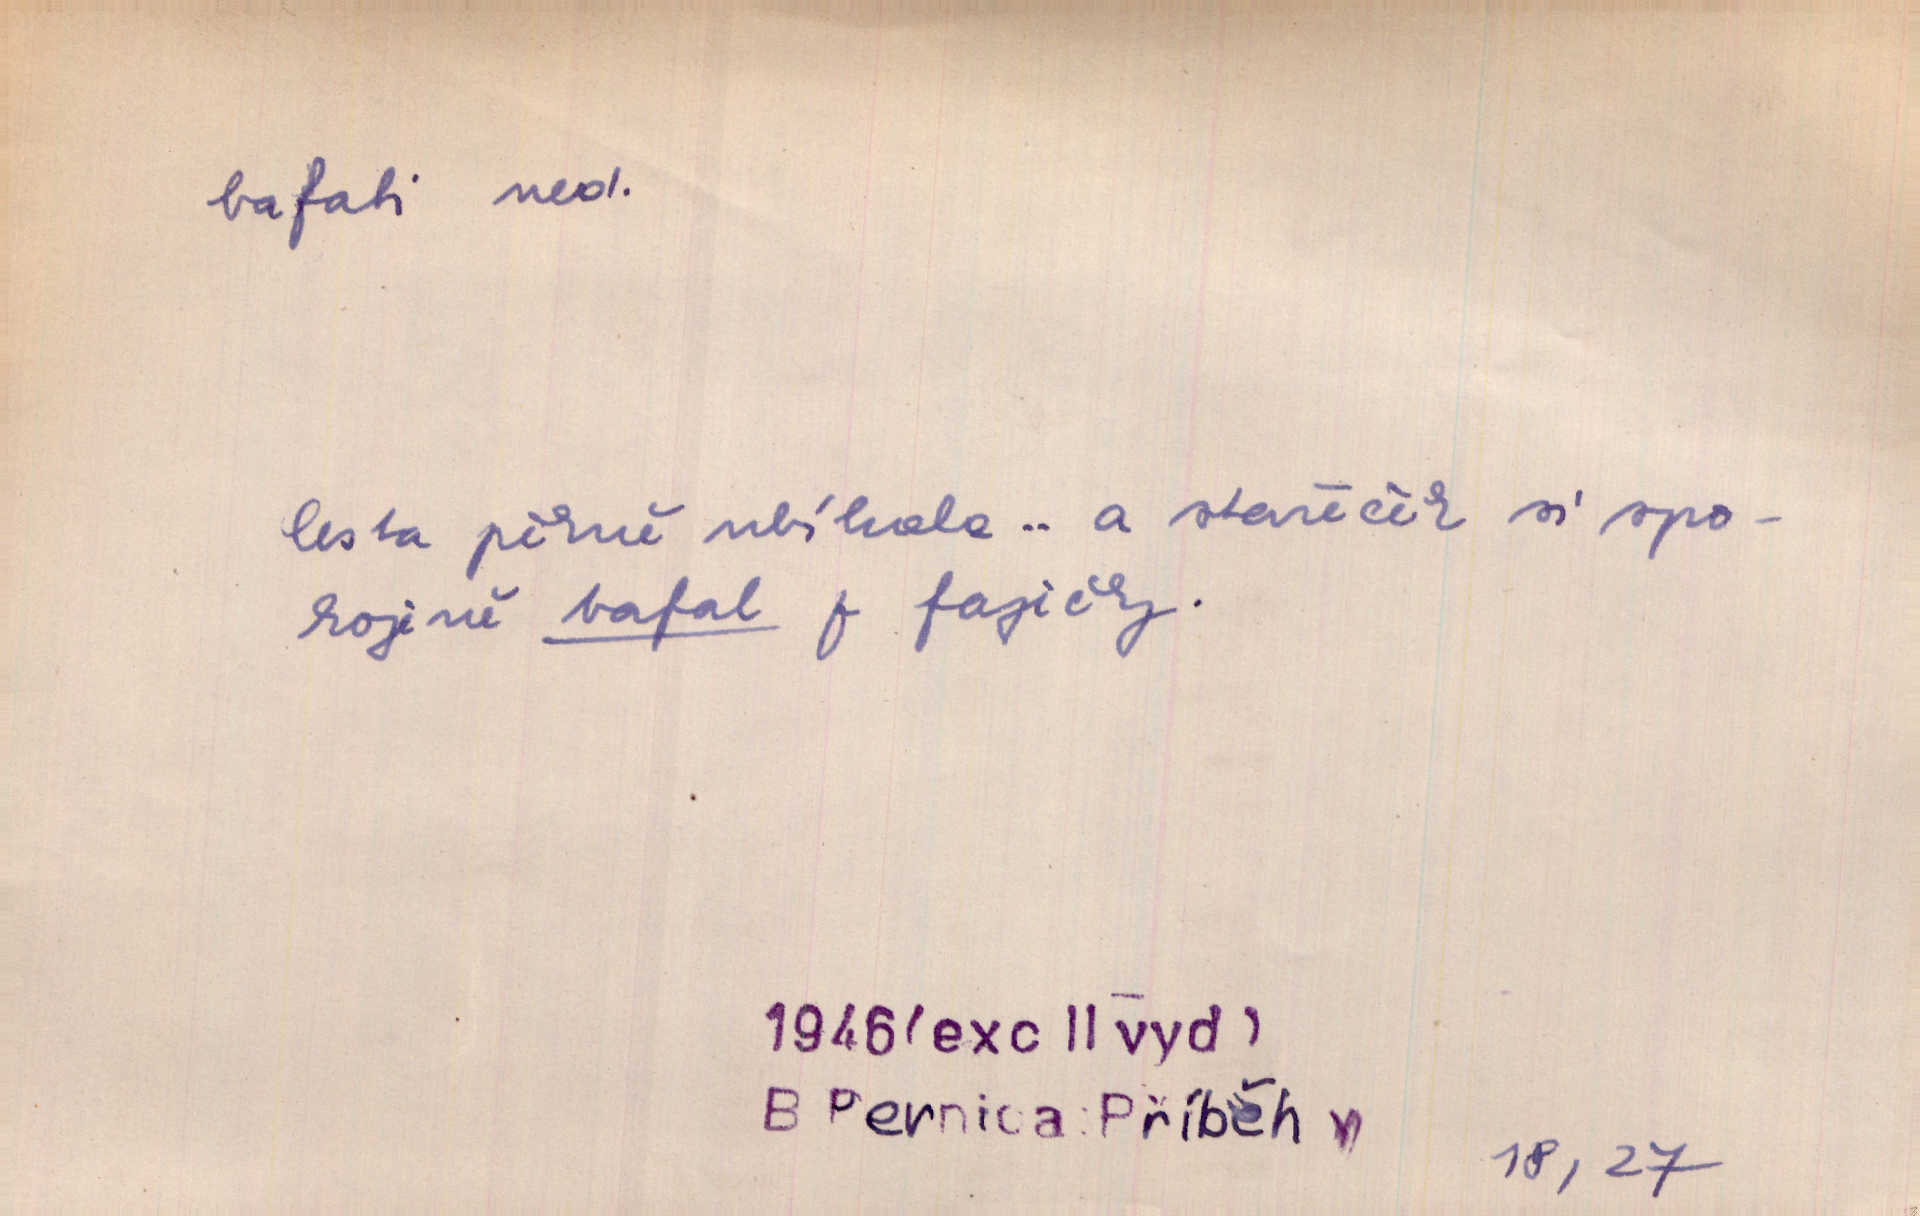 bafati ned.
Cesta pěkně ubíhala .. a stařeček si spo-
kojeně bafal z fajčičky.
1946 (exc II vyd)
B Pernica: Příběh
18, 27